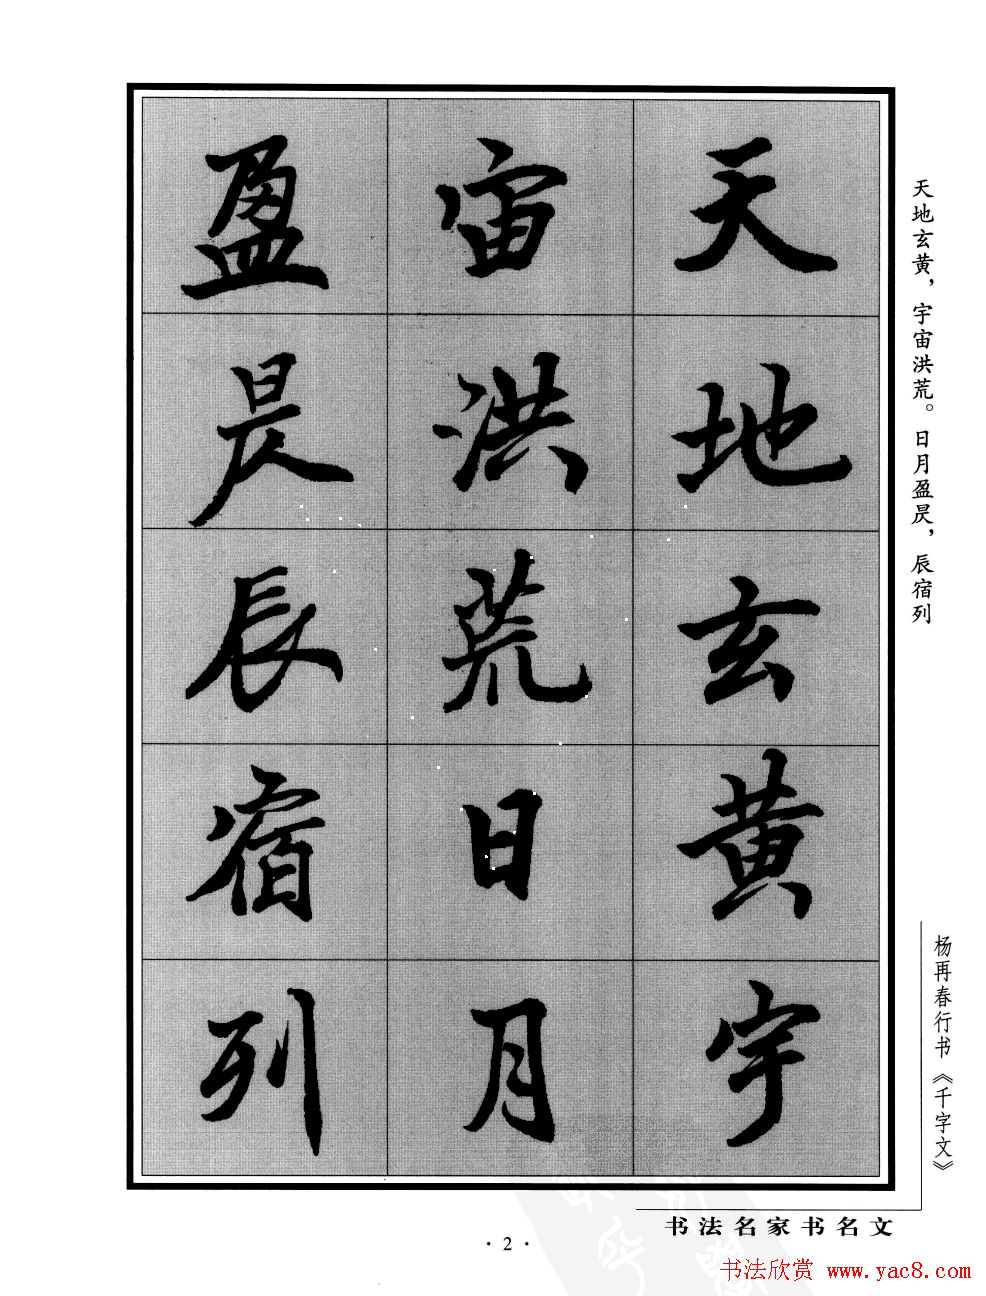 天地玄黄，宇宙洪荒。日月盈昃，辰宿列
天地玄黄宇
宙洪荒日月
盈昃辰宿列
杨再春行书《千字文》
书法名家书名文
· 2 ·
书法欣赏 www.yac8.com